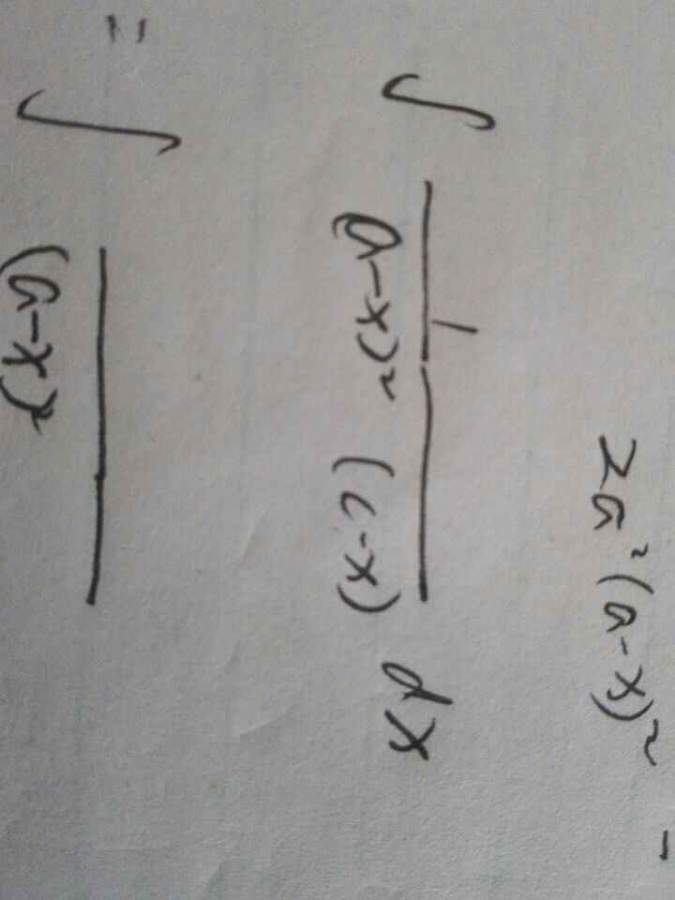 2a²(a-x)² -
∫ 1/((a-x)² (c-x)) dx
= ∫ /(a-x)²